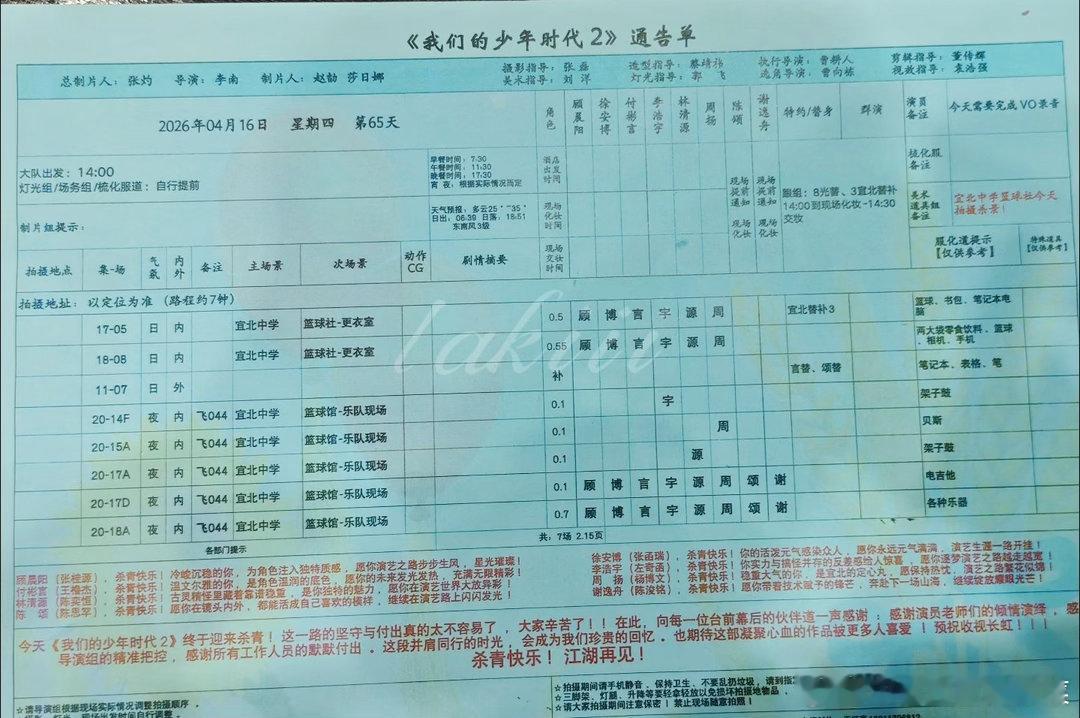 《我们的少年时代2》通告单
总制片人：张灼 导演：李南 制片人：赵韵 莎日娜
摄影指导：张磊 造型指导：蔡靖祎 执行导演：曹耕人 剪辑指导：董传辉
美术指导：刘洋 灯光指导：郭飞 选角导演：曹向栋 视效指导：袁浩强
2026年04月16日 星期四 第65天
角色 顾晨阳 徐安博 付彬言 李浩宇 林清源 周扬 陈颂 谢逸舟 特约/替身 群演
演员备注 今天需要完成VO录音
大队出发：14:00
灯光组/场务组/梳化服道：自行提前
早餐时间：7:30
午餐时间：11:30
晚餐时间：17:30
宵夜：根据实际情况而定
酒店出发时间
现场提前通知 现场提前通知
梳化服备注
跟组：8光替、3宜北替补
14:00到现场化妆-14:30
交妆
美术道具组备注 宜北中学篮球社今天拍摄杀景！
制片组提示：
天气预报：多云25°~35°
日出：06:39 日落：18:51
东南风3级
现场化妆时间 现场化妆 现场化妆
拍摄地点 集-场 气氛 内外 备注 主场景 次场景 动作CG 剧情摘要 现场交妆时间 服化道提示【仅供参考】 特殊道具【仅供参考】
拍摄地址：以定位为准（路程约7钟）
17-05 日 内 宜北中学 篮球社-更衣室 0.5 顾 博 言 宇 源 周 宜北替补3 篮球、书包、笔记本电脑
18-08 日 内 宜北中学 篮球社-更衣室 0.55 顾 博 言 宇 源 周 两大袋零食饮料、篮球、相机、手机
11-07 日 外 补 言替、颂替 笔记本、表格、笔
20-14F 夜 内 飞044 宜北中学 篮球馆-乐队现场 0.1 宇 架子鼓
20-15A 夜 内 飞044 宜北中学 篮球馆-乐队现场 0.1 周 贝斯
20-17A 夜 内 飞044 宜北中学 篮球馆-乐队现场 0.1 源 架子鼓
20-17D 夜 内 飞044 宜北中学 篮球馆-乐队现场 0.1 顾 博 言 宇 源 周 颂 谢 电吉他
20-18A 夜 内 飞044 宜北中学 篮球馆-乐队现场 0.7 顾 博 言 宇 源 周 颂 谢 各种乐器
共：7场 2.15页
各部门提示
顾晨阳（张桂源），杀青快乐！冷峻沉稳的你，为角色注入独特质感，愿你演艺之路步步生风，星光璀璨！
付彬言（王橹杰），杀青快乐！温文尔雅的你，是角色温润的底色，愿你的未来发光发热，充满无限精彩！
林清源（陈奕恒），杀青快乐！古灵精怪里藏着靠谱稳重，是你独特的魅力，愿你在演艺世界大放异彩！
陈 颂（陈思罕），杀青快乐！愿你在镜头内外，都能活成自己喜欢的模样，继续在演艺路上闪闪发光！
徐安博（张函瑞），杀青快乐！你的活泼元气感染众人，愿你永远元气满满，演艺生涯一路开挂！
李浩宇（左奇函），杀青快乐！你实力与搞怪并存的反差感给人惊喜，愿你逐梦演艺之路越走越宽！
周 扬（杨博文），杀青快乐！稳重大气的你，是宜北的定心丸，愿你保持热忱，演艺之路繁花似锦！
谢逸舟（陈浚铭），杀青快乐！愿你带着技术赋予的锋芒，奔赴下一场山海，继续绽放耀眼光芒！
今天《我们的少年时代2》终于迎来杀青！这一路的坚守与付出真的太不容易了，大家辛苦了！！在此，向每一位台前幕后的伙伴道一声感谢：感谢演员老师们的倾情演绎，感
导演组的精准把控，感谢所有工作人员的默默付出。这段并肩同行的时光，会成为我们珍贵的回忆。也期待这部凝聚心血的作品被更多人喜爱！预祝收视长虹！！！
杀青快乐！江湖再见！
☆请导演组根据现场实际情况调整拍摄顺序，
☆拍摄期间请手机静音、保持卫生、不要乱扔垃圾，请到指
☆三脚架、灯腿、升降等要轻拿轻放以免损坏拍摄地物品，
☆请大家拍摄期间注意保密！禁止现场随意拍照！
lakrii